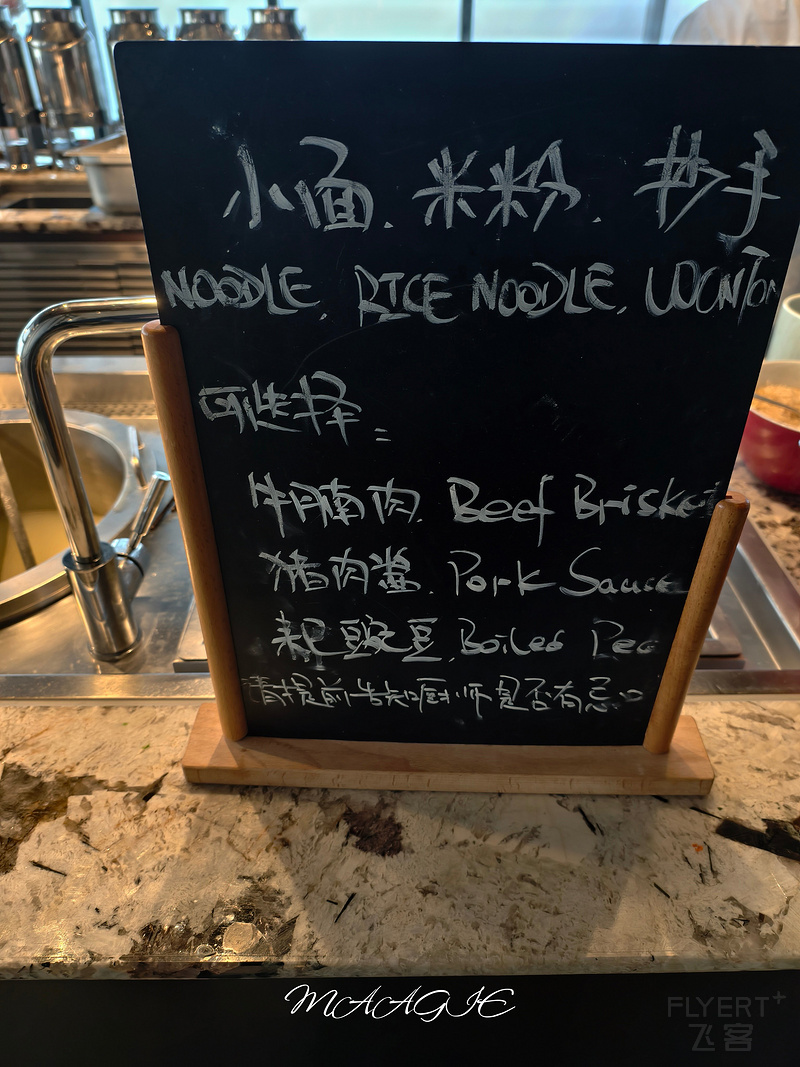 小面. 米粉. 抄手
NOODLE. RICE NOODLE. WONTON
可选择:
牛腩肉. Beef Brisket
猪肉酱. Pork Sauce
耙豌豆. Boiled Pea
请提前告知厨师是否有忌口
MAAGIE
FLYERT+
飞客